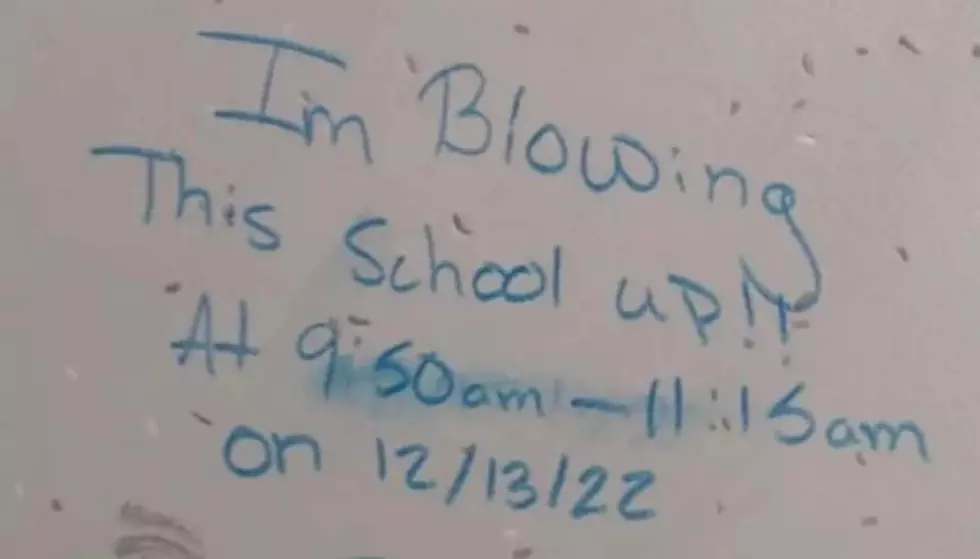 Im Blowing
This School up!!
At 9:50am - 11:15am
on 12/13/22